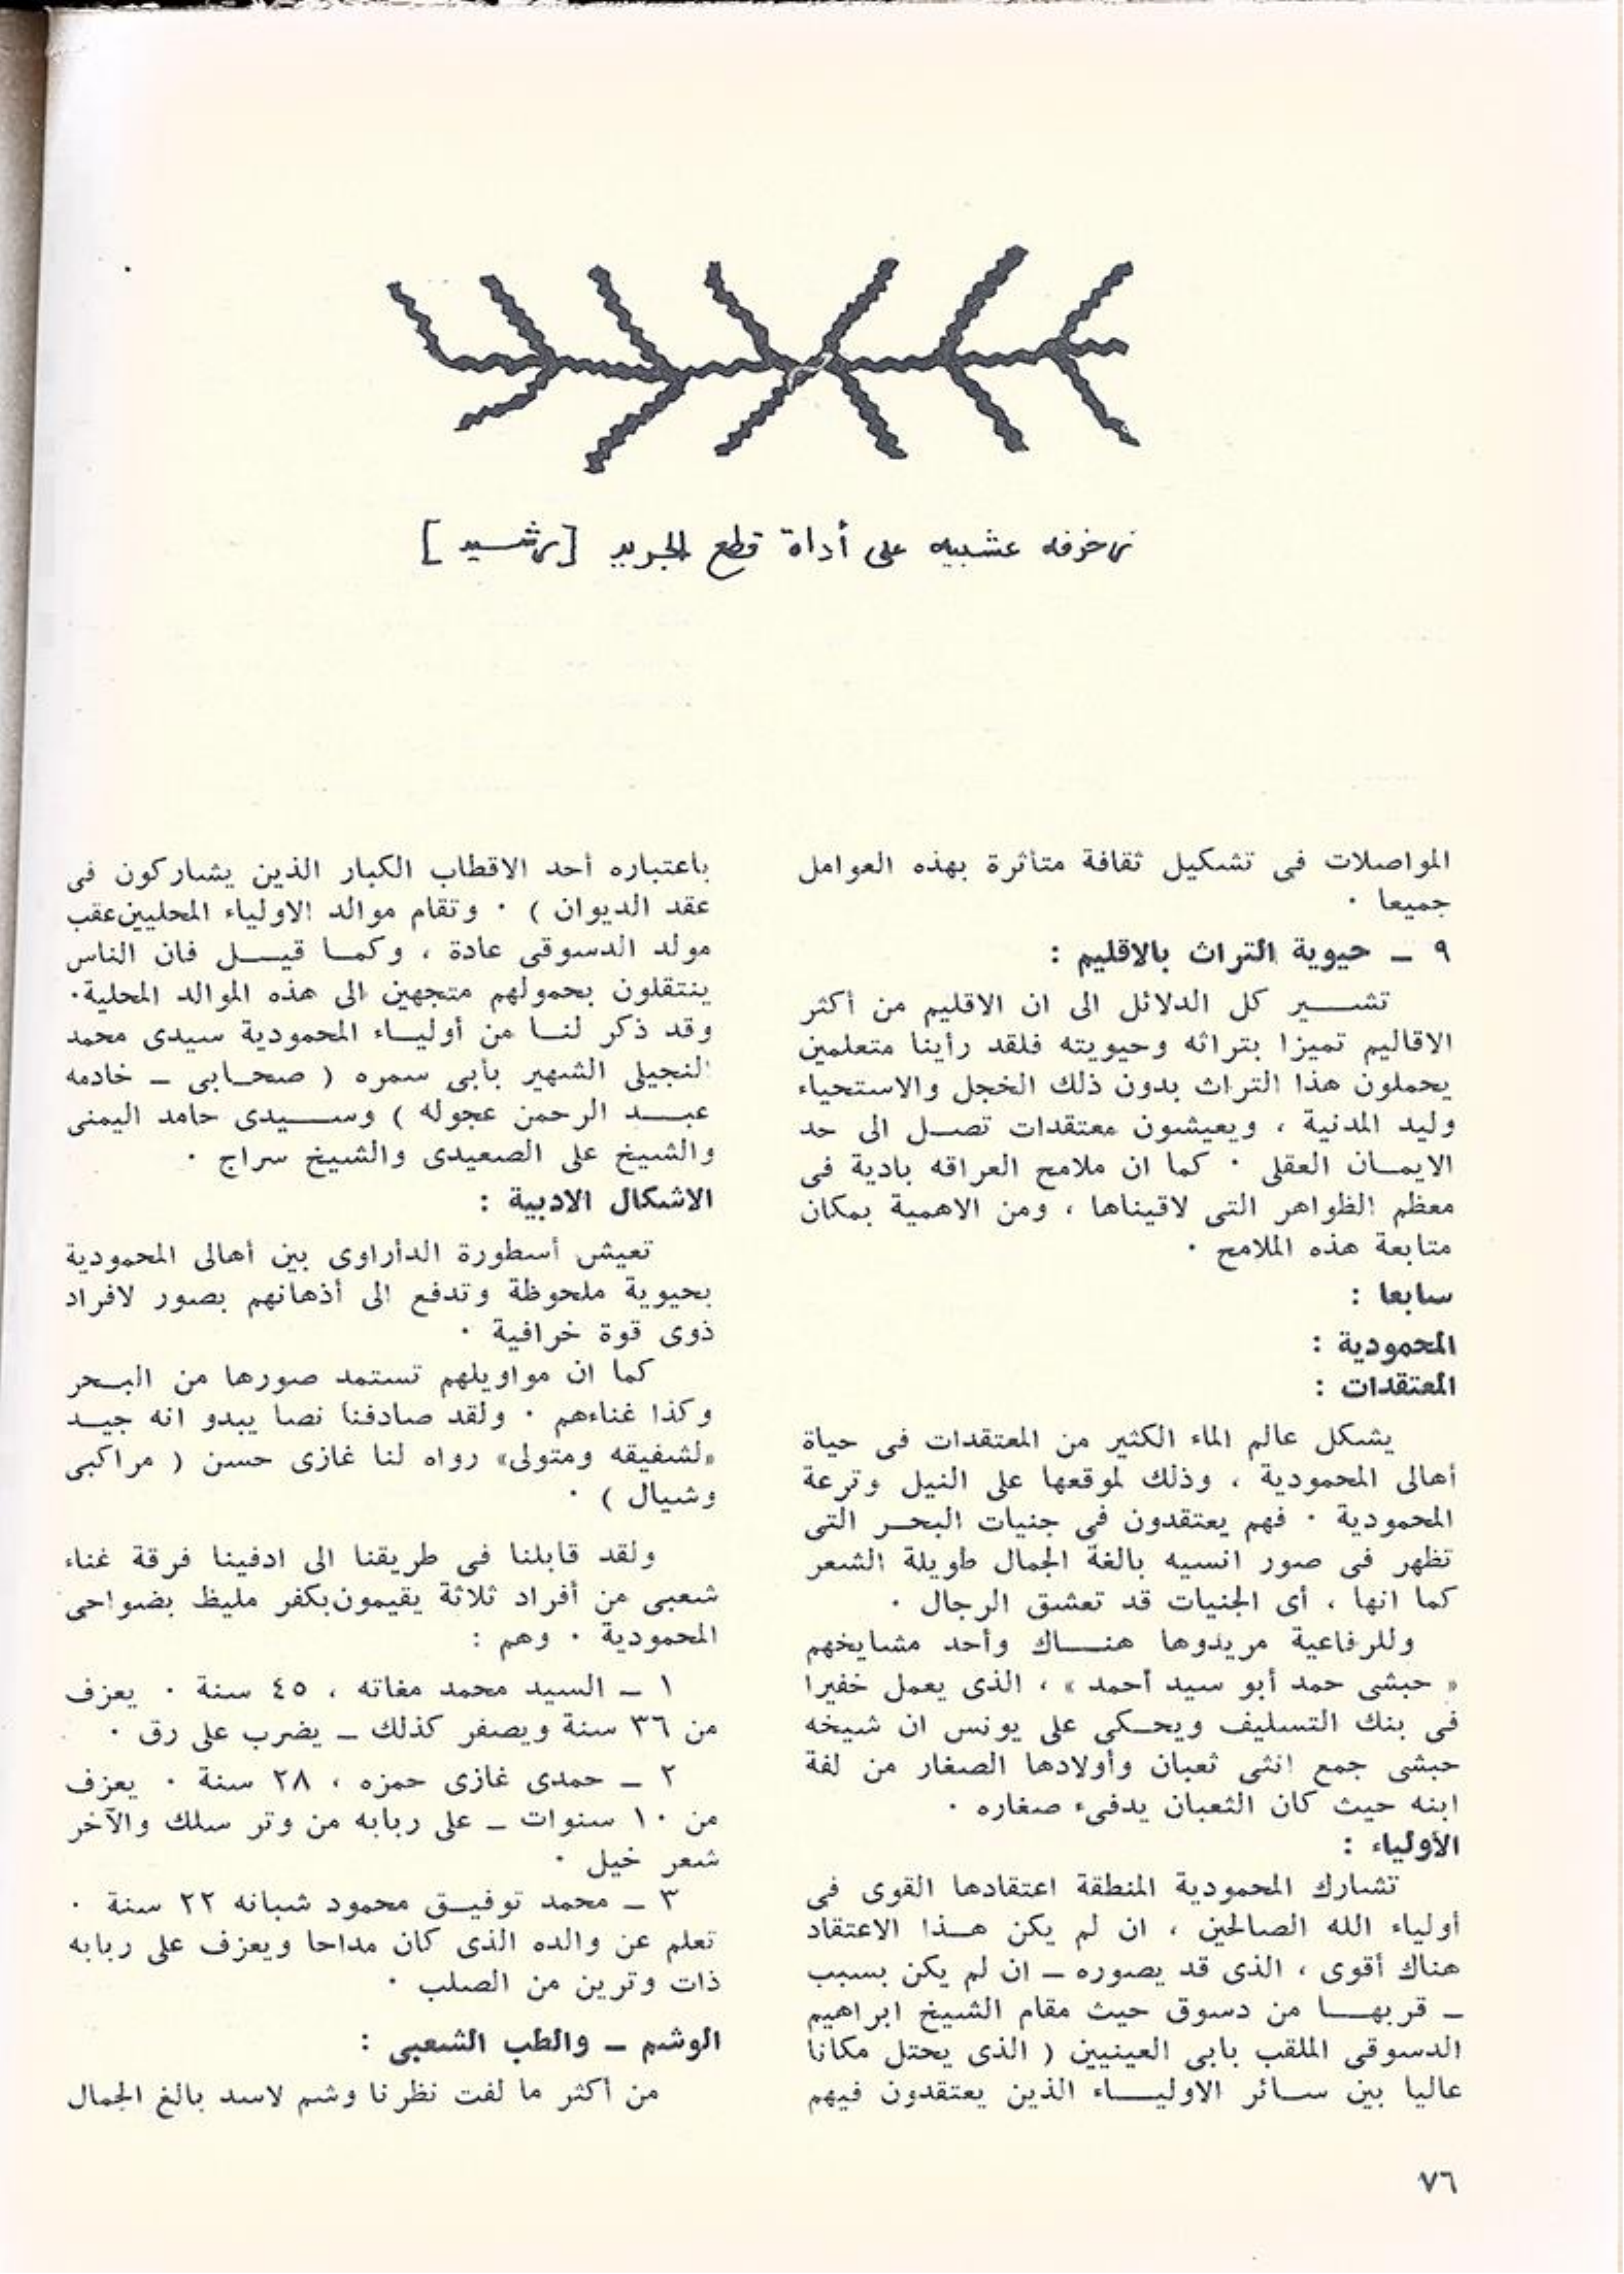 زخرفه عشبيه على أداة قطع الجريد [رشيد]
المواصلات فى تشكيل ثقافة متأثرة بهذه العوامل
جميعا ٠
٩ ـ حيوية التراث بالاقليم :
تشـــير كل الدلائل الى ان الاقليم من أكثر
الاقاليم تميزا بتراثه وحيويته فلقد رأينا متعلمين
يحملون هذا التراث بدون ذلك الخجل والاستحياء
وليد المدنية ، ويعيشون معتقدات تصــل الى حد
الايمــان العقلى ٠ كما ان ملامح العراقه بادية فى
معظم الظواهر التى لاقيناها ، ومن الاهمية بمكان
متابعة هذه الملامح ٠
سابعا :
المحمودية :
المعتقدات :
يشكل عالم الماء الكثير من المعتقدات فى حياة
أهالى المحمودية ، وذلك لموقعها على النيل وترعة
المحمودية ٠ فهم يعتقدون فى جنيات البحــر التى
تظهر فى صور انسيه بالغة الجمال طويلة الشعر
كما انها ، أى الجنيات قد تعشق الرجال ٠
وللرفاعية مريدوها هنـــاك وأحد مشايخهم
« حبشى حمد أبو سيد أحمد » ، الذى يعمل خفيرا
فى بنك التسليف ويحــكى على يونس ان شيخه
حبشى جمع انثى ثعبان وأولادها الصغار من لفة
ابنه حيث كان الثعبان يدفىء صغاره ٠
الأولياء :
تشارك المحمودية المنطقة اعتقادها القوى فى
أولياء الله الصالحين ، ان لم يكن هــذا الاعتقاد
هناك أقوى ، الذى قد يصوره ـ ان لم يكن بسبب
ـ قربهـــا من دسوق حيث مقام الشيخ ابراهيم
الدسوقى الملقب بابى العينيين ( الذى يحتل مكانا
عاليا بين ســائر الاوليـــاء الذين يعتقدون فيهم
باعتباره أحد الاقطاب الكبار الذين يشاركون فى
عقد الديوان ) ٠ وتقام موالد الاولياء المحليين عقب
مولد الدسوقى عادة ، وكمــا قيـــل فان الناس
ينتقلون بحمولهم متجهين الى هذه الموالد المحلية٠
وقد ذكر لنــا من أوليــاء المحمودية سيدى محمد
النجيلى الشهير بأبى سمره ( صحــابى ـ خادمه
عبـــد الرحمن عجوله ) وســـيدى حامد اليمنى
والشيخ على الصعيدى والشيخ سراج ٠
الاشكال الادبية :
تعيش أسطورة الدأراوى بين أهالى المحمودية
بحيوية ملحوظة وتدفع الى أذهانهم بصور لافراد
ذوى قوة خرافية ٠
كما ان مواويلهم تستمد صورها من البــحر
وكذا غناءهم ٠ ولقد صادفنا نصا يبدو انه جيــد
«لشفيقه ومتولى» رواه لنا غازى حسن ( مراكبى
وشيال ) ٠
ولقد قابلنا فى طريقنا الى ادفينا فرقة غناء
شعبى من أفراد ثلاثة يقيمون بكفر مليظ بضواحى
المحمودية ٠ وهم :
١ ـ السيد محمد مغاته ، ٤٥ سنة ٠ يعزف
من ٣٦ سنة ويصفر كذلك ـ يضرب على رق ٠
٢ ـ حمدى غازى حمزه ، ٢٨ سنة ٠ يعزف
من ١٠ سنوات ـ على ربابه من وتر سلك والآخر
شعر خيل ٠
٣ ـ محمد توفيــق محمود شبانه ٢٢ سنة ٠
تعلم عن والده الذى كان مداحا ويعزف على ربابه
ذات وترين من الصلب ٠
الوشم ـ والطب الشعبى :
من أكثر ما لفت نظرنا وشم لاسد بالغ الجمال
٧٦